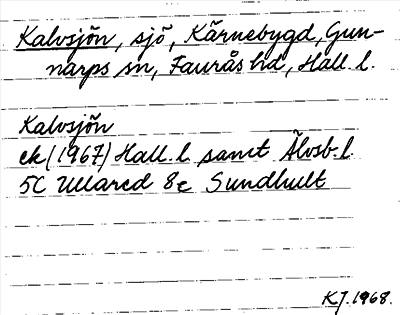 Kalvsjön, sjö, Kärnebygd, Gun-
narps sn, Faurås hd, Hall. l.
Kalvsjön
ek (1967) Hall. l. samt Älvsb. l.
5C Ullared 8e Sundhult
KJ. 1968.